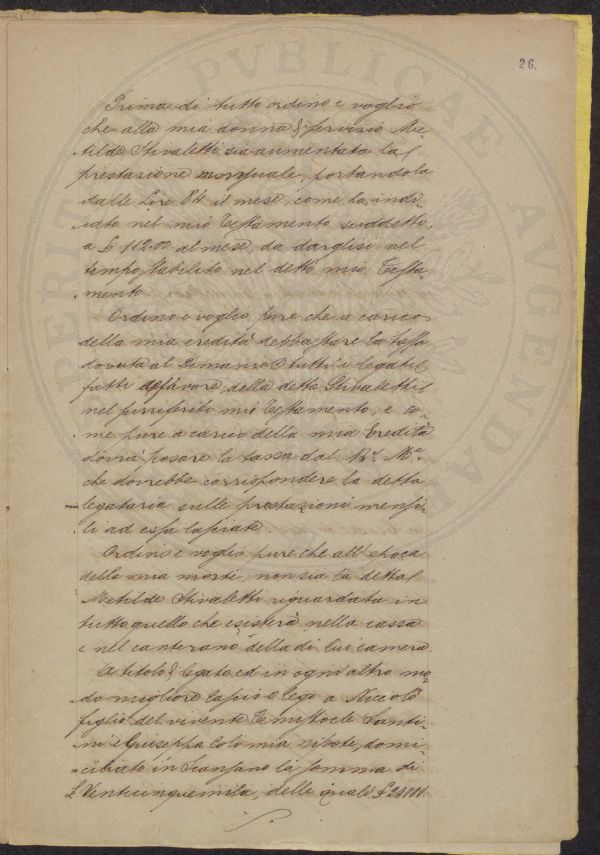 26.
Prima di tutto ordino e voglio
che alla mia donna di servizio Me-
tilde Stivaletti sia aumentata la
prestazione mensuale, portandola
dalle Lire 84 il mese, come ho indi-
cato nel mio Testamento suddetto,
a £ 112.00 al mese, da darglisi nel
tempo stabilito nel detto mio Testa-
mento.
Ordino e voglio pure che a carico
della mia eredità debba stare la tassa
dovuta al Demanio tutti i legati
fatti a favore della detta Stivaletti
nel surriferito mio Testamento, e co-
me pure a carico della mia Eredità
dovrà posare la tassa dal
che dovrebbe corrispondere la detta
legataria sulle prestazioni mensi-
li ad essa lasciate.
Ordino e voglio pure che all'epoca
della mia morte, non sia la detta
Metilde Stivaletti riguardata in
tutto quello che esisterà nella cassa
e nel canterano della di lui camera.
A titolo di legato ed in ogni altro mo-
do migliore lascio e lego a Niccolò
figlio del vivente Temistocle Santi-
ni e Giuseppa Colo mia nipote, domi-
ciliato in Scansano la somma di
£ Venticinquemila, delle quali £ 24000